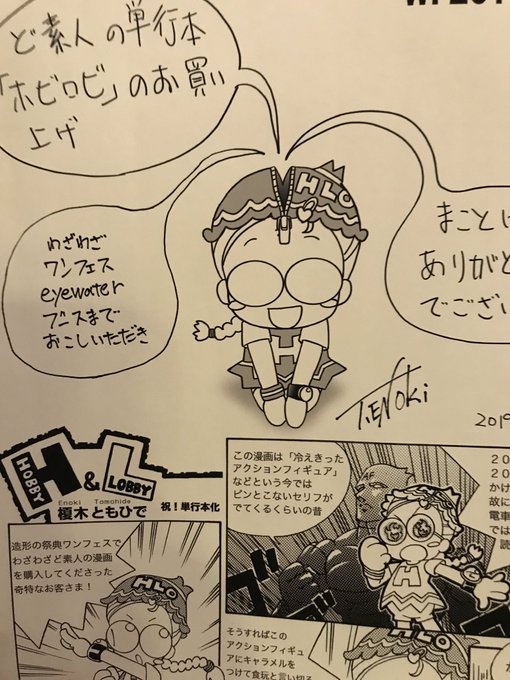 ど素人の単行本
「ホビロビ」のお買い
上げ
わざわざ
ワンフェス
eyewater
ブースまで
おこしいただき
まことに
ありがと
でござい
HLO
H
T.ENOKi
2019
HOBBY & LOBBY
Enoki Tomohide
榎木ともひで
祝！単行本化
造形の祭典ワンフェスで
わざわざど素人の漫画
を購入してくださった
奇特なお客さま！
HLO
この漫画は「冷えきった
アクションフィギュア」
などという今では
ピンとこないセリフが
でてくるくらいの昔
H
HLO
２０
２０
かけ
故に
電車
では
読
そうすればこの
アクションフィギュ
アにキャラメルを
つけて食玩と言い切る